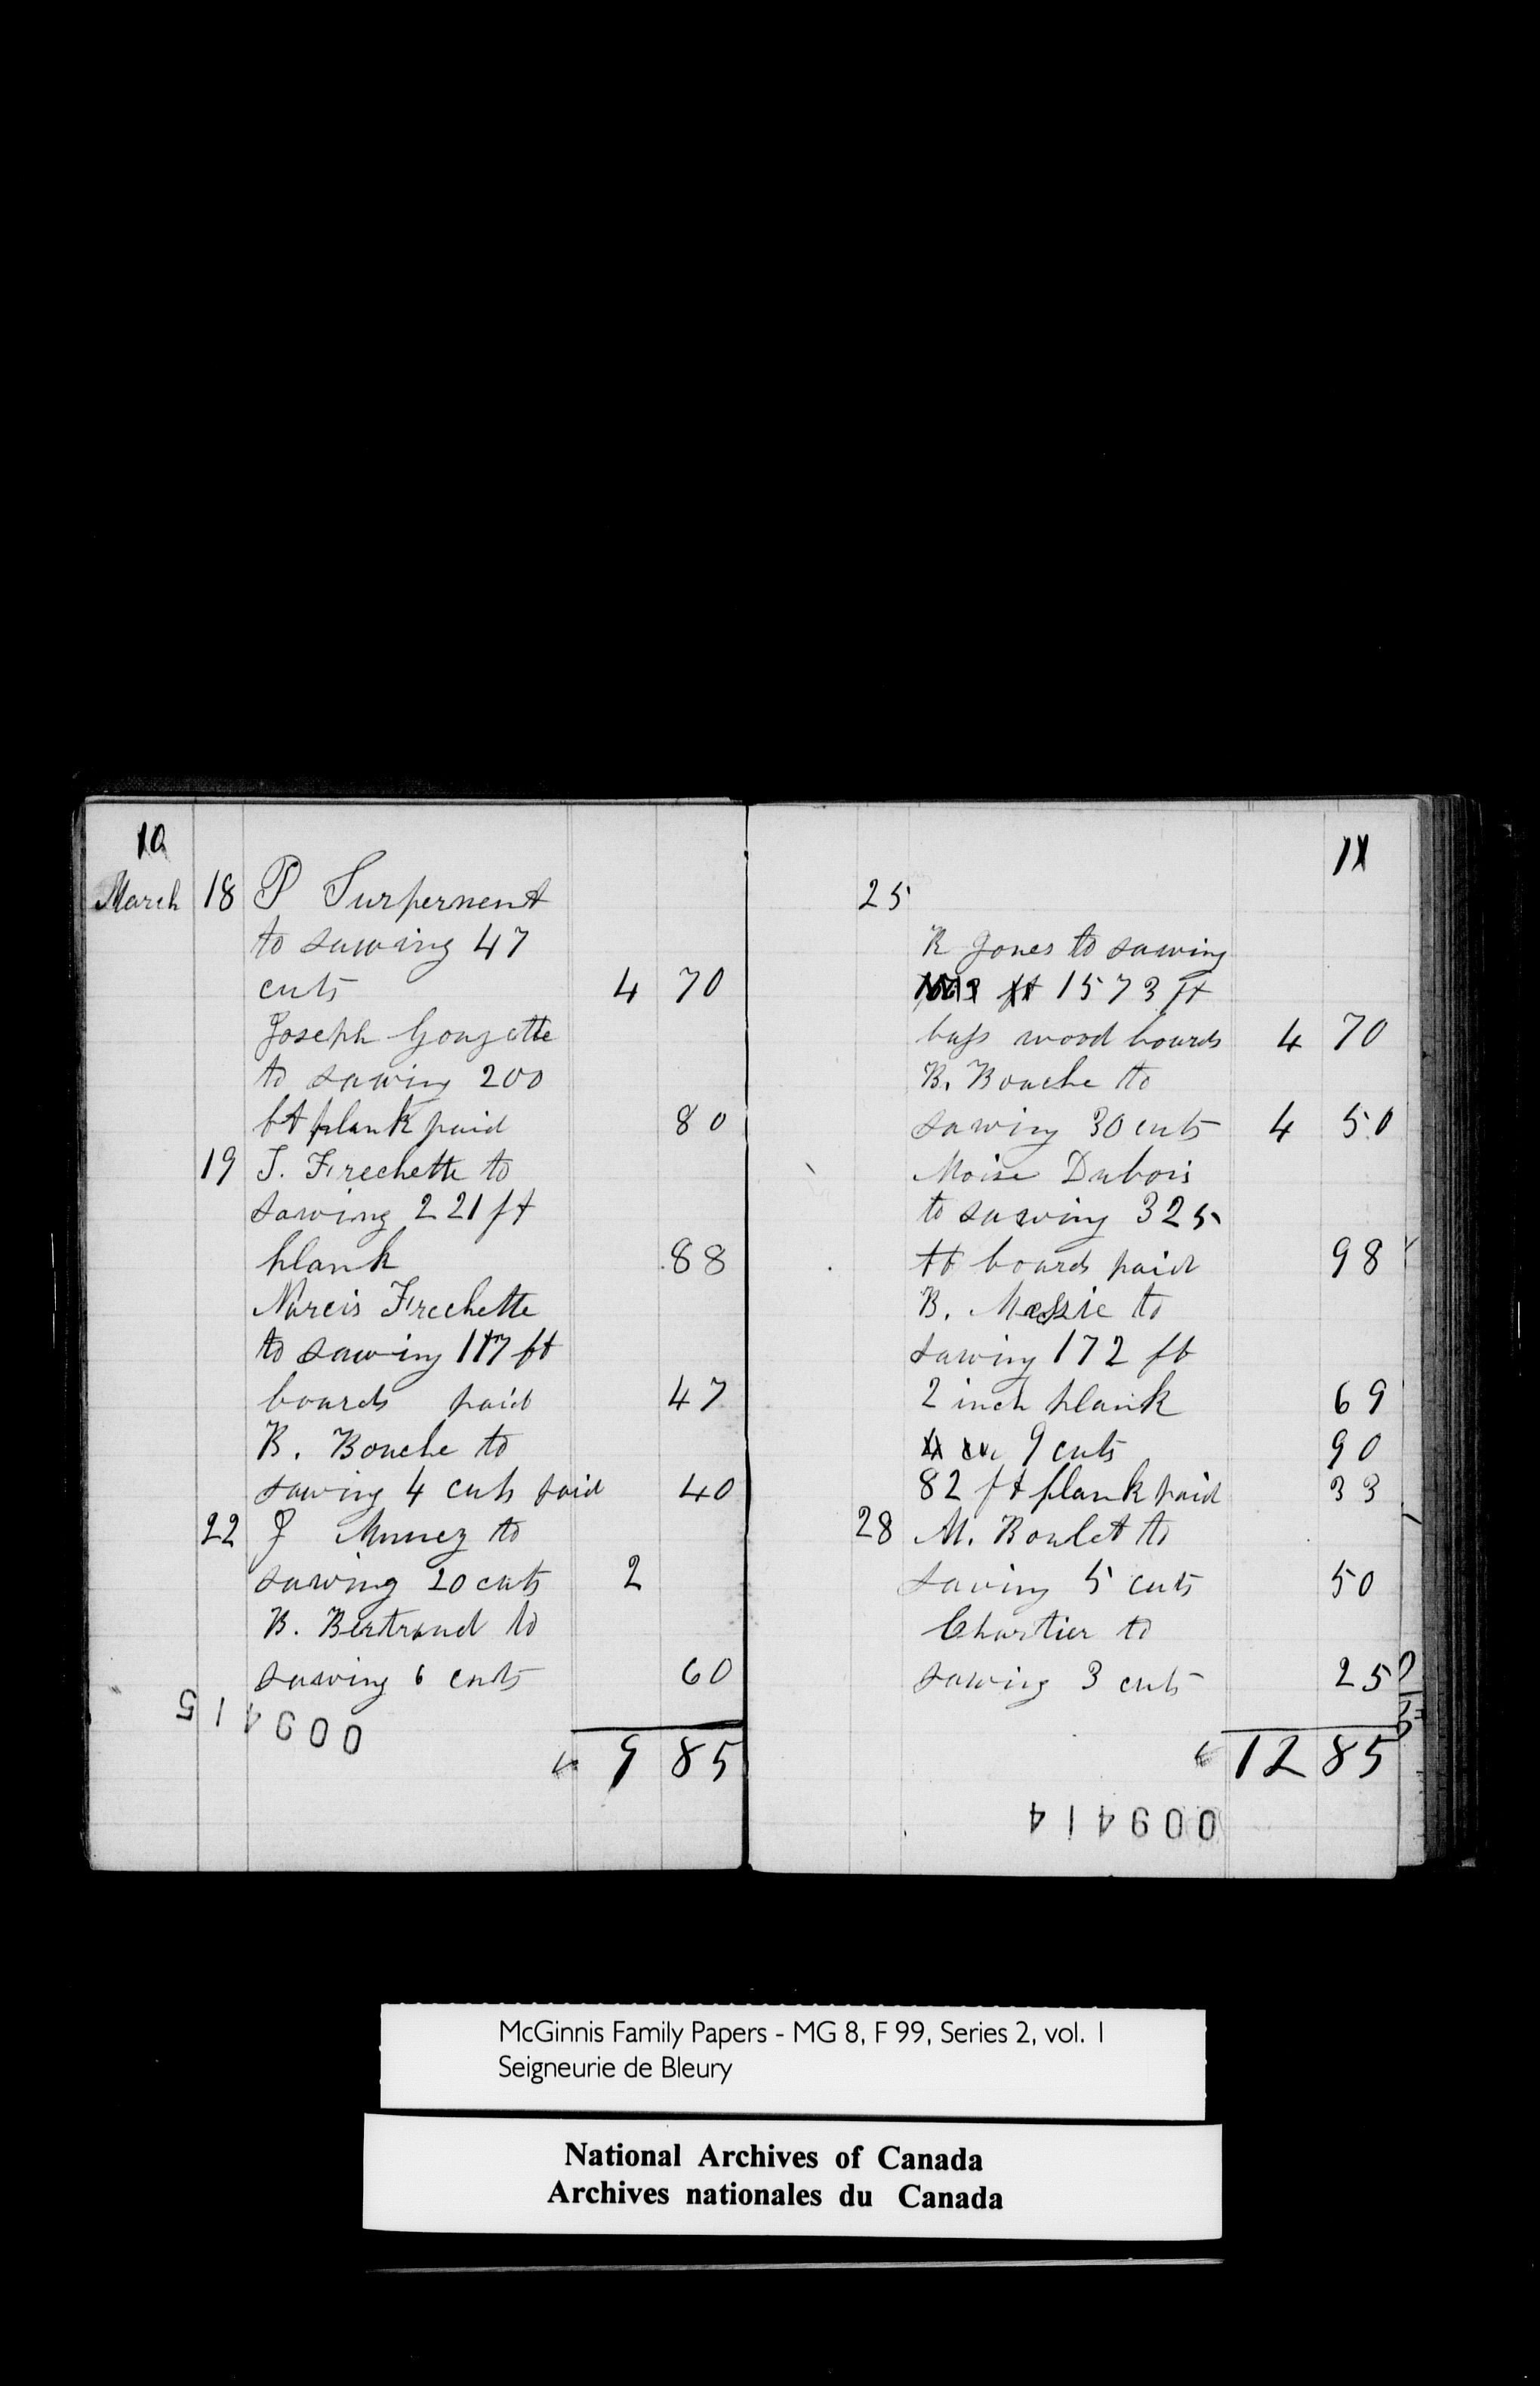 10
March 18 P Surpernent
to sawing 47
cuts 4 70
Joseph Gouzette
to sawing 200
ft plank paid 80
19 J. Frechette to
sawing 221 ft
plank 88
Narcis Frechette
to sawing 117 ft
boards paid 47
B. Bouche to
sawing 4 cuts paid 40
22 J to
sawing 20 cuts 2
B. Bertrand to
sawing 6 cuts 60
9 85
009415
11
25
R Jones to sawing
1573 ft
bass wood boards 4 70
B. Bouche to
sawing 30 cuts 4 50
Moise Dubois
to sawing 325
ft boards paid 98
B. Messie to
sawing 172 ft
2 inch plank 69
9 cuts 90
82 ft plank paid 33
28 M. Boulet to
sawing 5 cuts 50
Chartier to
sawing 3 cuts 25
12 85
009414
McGinnis Family Papers - MG 8, F 99, Series 2, vol. 1
Seigneurie de Bleury
National Archives of Canada
Archives nationales du Canada